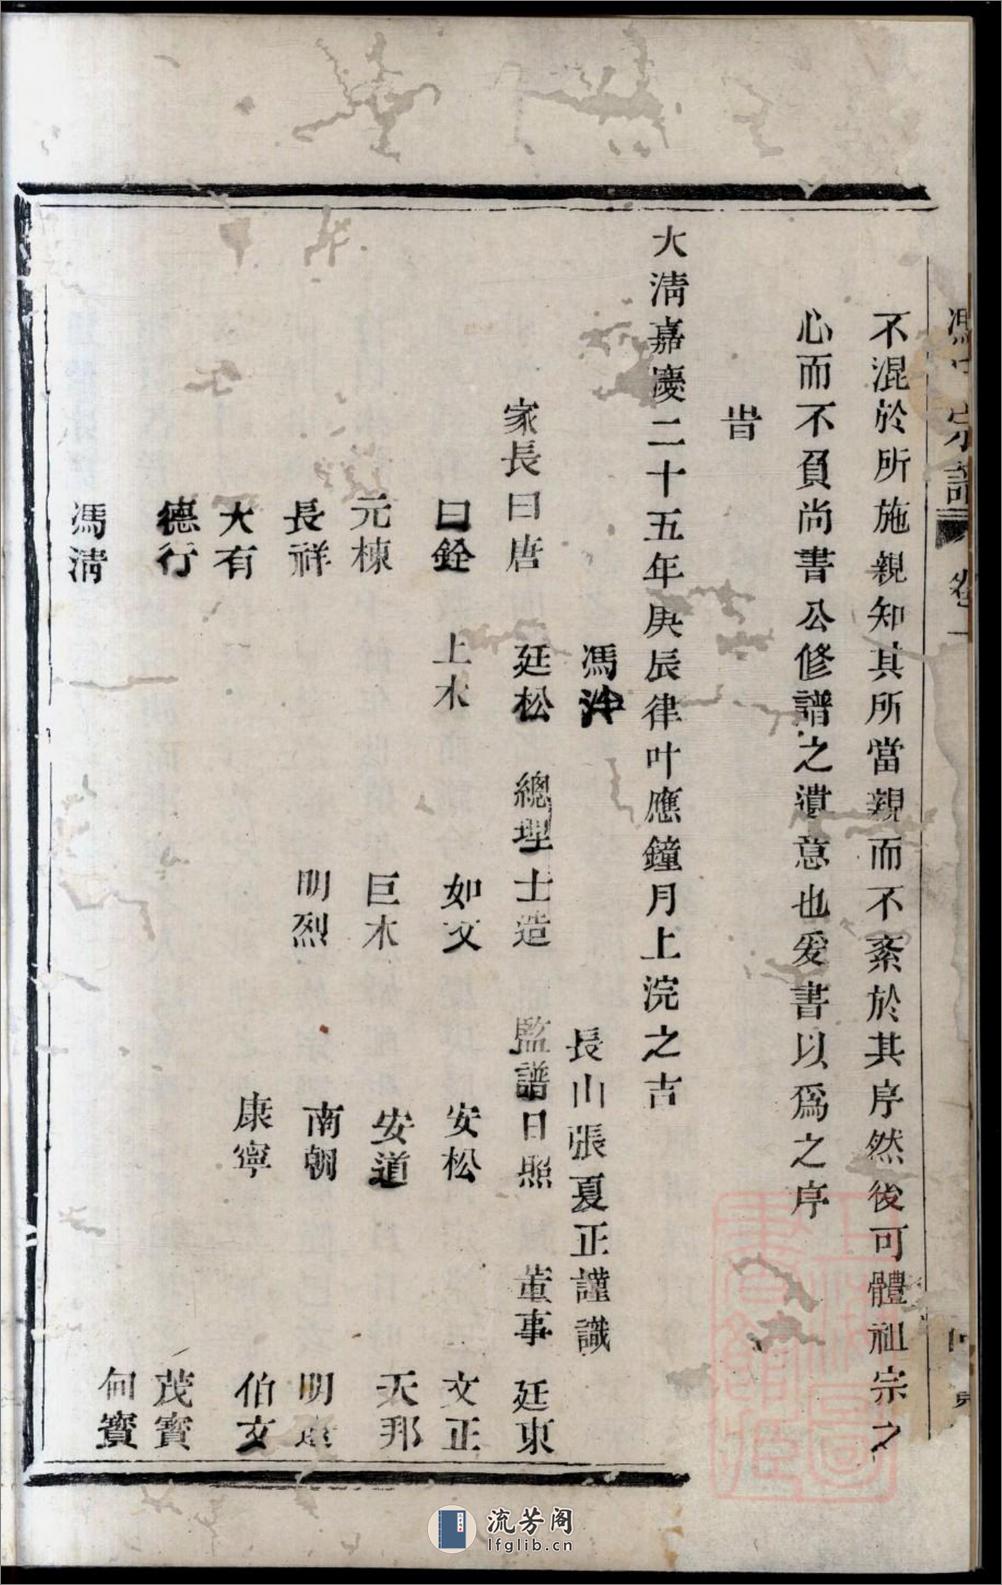 不混於所施親知其所當親而不紊於其序然後可體祖宗之
心而不負尚書公修譜之遺意也爰書以爲之序
旹
大淸嘉慶二十五年庚辰律叶應鐘月上浣之吉
長山張夏正謹識
馮
家長曰唐 廷松 總理士造 監譜日照 董事 廷東
曰銓 上木 如文 安松 文正
元棟 巨木 安道 天邦
長祥 明烈 南朝 明
大有 康寧 伯玄
德行 茂寳
馮淸 何寳
宗譜
流芳阁
lfglib.cn